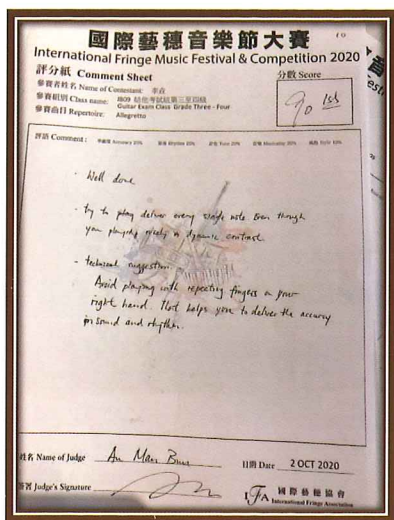 10
國際藝穗音樂節大賽
International Fringe Music Festival & Competition 2020
評分紙 Comment Sheet
分數 Score
參賽者姓名 Name of Contestant:
90 1st
參賽組別 Class name: I809 結他考試組第三至四級
Guitar Exam Class Grade Three - Four
參賽曲目 Repertoire: Allegretto
評語 Comment: 準確度 Accuracy 20% 節奏 Rhythm 20% 音色 Tone 20% 音樂 Musicality 20% 風格 Style 20%
- Well done
- try to play deliver every single note. Even though
your playing nicely in dynamic contrast.
- technical suggestion:
Avoid playing with repeating fingers on your
right hand. That helps you to deliver the accuracy
in sound and rhythm.
姓名 Name of Judge Au Man
日期 Date 2 OCT 2020
簽署 Judge's Signature
IFA 國際藝穗協會
International Fringe Association